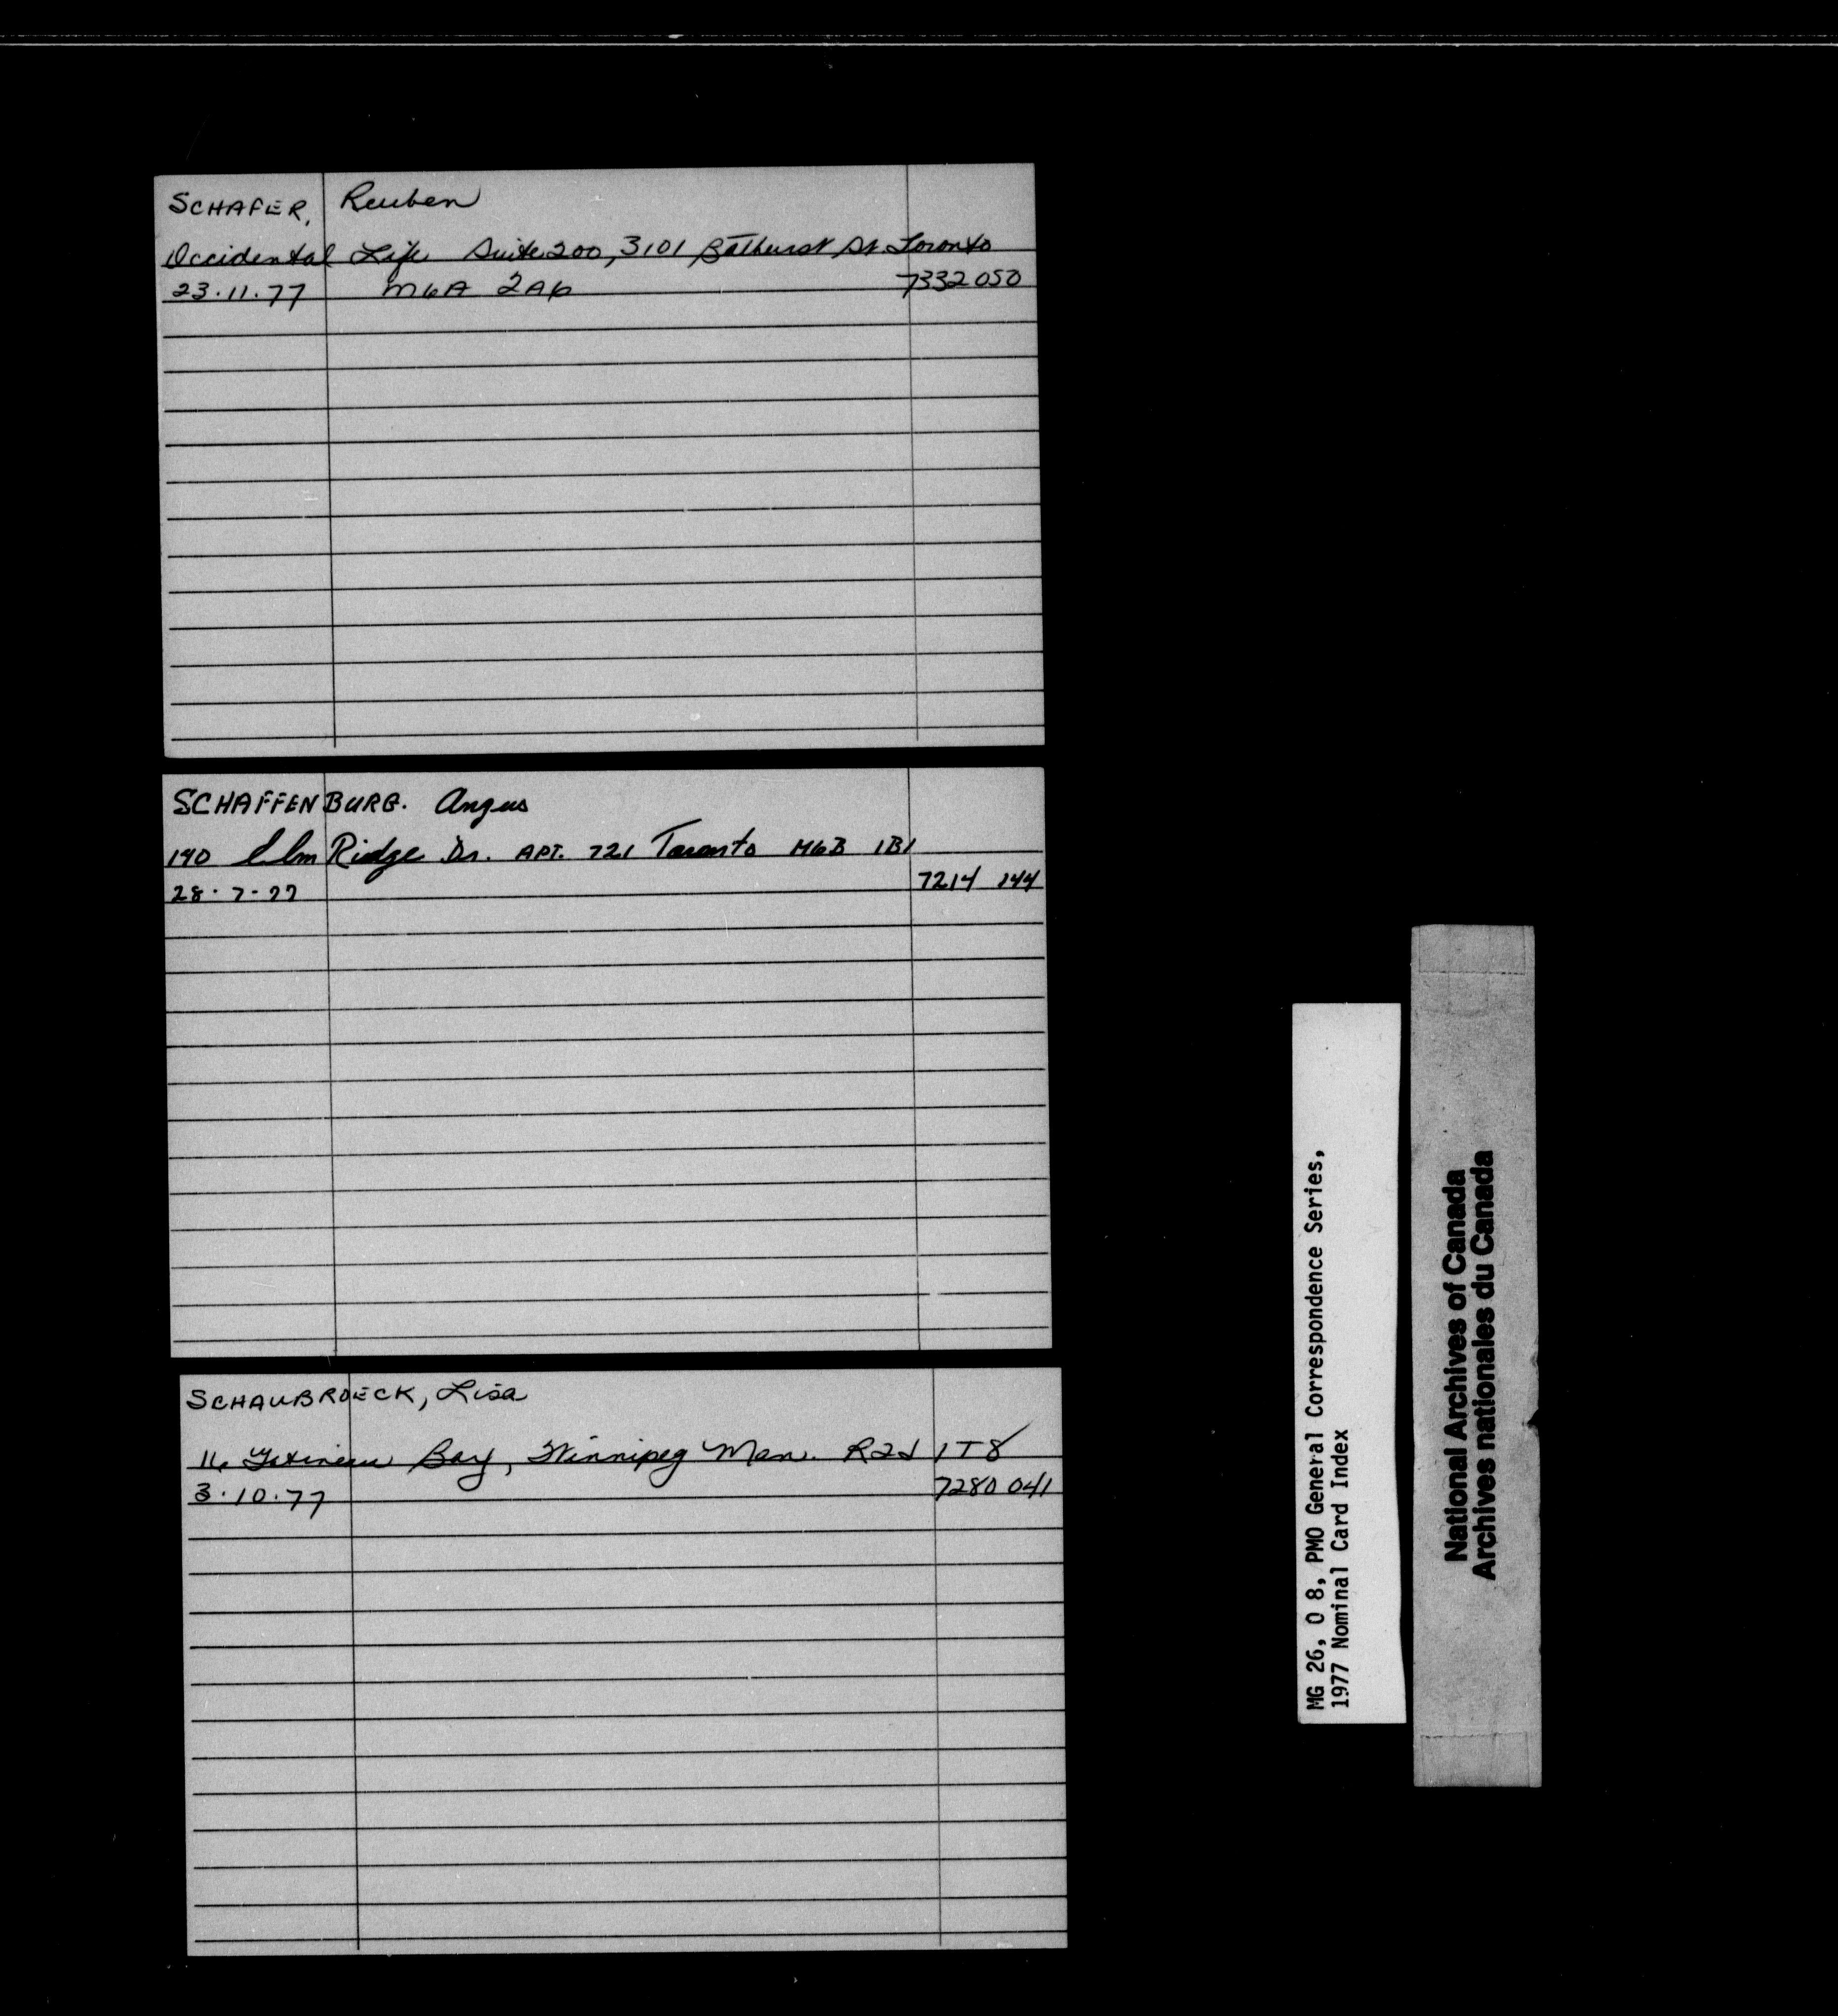 SCHAFER, Reuben
Occidental Life Suite 200, 3101 Bathurst St. Toronto
23.11.77 M6A 2A6 7332 050
SCHAFFENBURG. Angus
140 Elm Ridge Dr. APT. 721 Toronto M6B 1B1
28.7-77 7214 144
SCHAUBROECK, Lisa
Bay, Winnipeg Man. R2J 1T8
3.10.77 7280 041
MG 26, O 8, PMO General Correspondence Series,
1977 Nominal Card Index
National Archives of Canada
Archives nationales du Canada